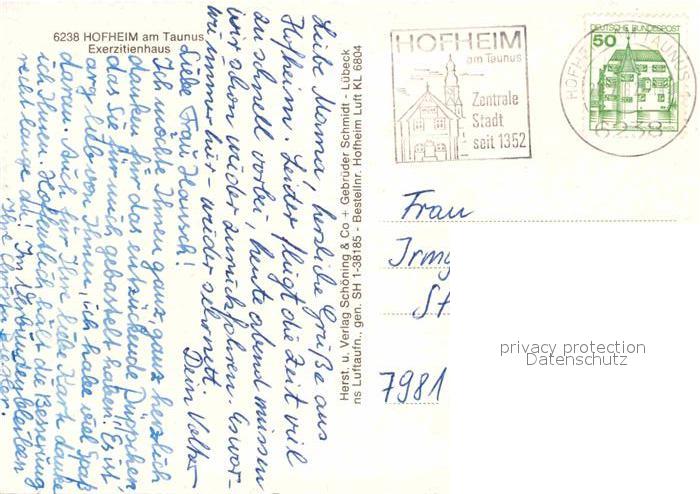 6238 HOFHEIM am Taunus
Exerzitienhaus
Liebe Mama, herzliche Grüße aus
Hofheim. Leider fliegt die Zeit viel
zu schnell vorbei, heute abend müssen
wir schon wieder zurückfahren. Es war
wie immer hier - wieder schön.
Dein Volker
Liebe Frau Hausch!
Ich möchte Ihnen ganz, ganz herzlich
danken für das entzückende Püppchen
das Sie für mich gebastelt haben. Es ist
arg lieb von Ihnen, ich habe viel Spaß
daran. Auch für Ihre liebe Karte danke
ich Ihnen. Hoffentlich hält die Besserung
recht lange an! Im Verbunden bleiben
Ihre
Herst. u. Verlag Schöning & Co + Gebrüder Schmidt - Lübeck
ns Luftaufn., gen. SH 1-38185 - Bestellnr. Hofheim Luft KL 6804
HOFHEIM
am Taunus
Zentrale
Stadt
seit 1352
DEUTSCHE BUNDESPOST
50
6238
Frau
Irmg
St
7981
privacy protection
Datenschutz